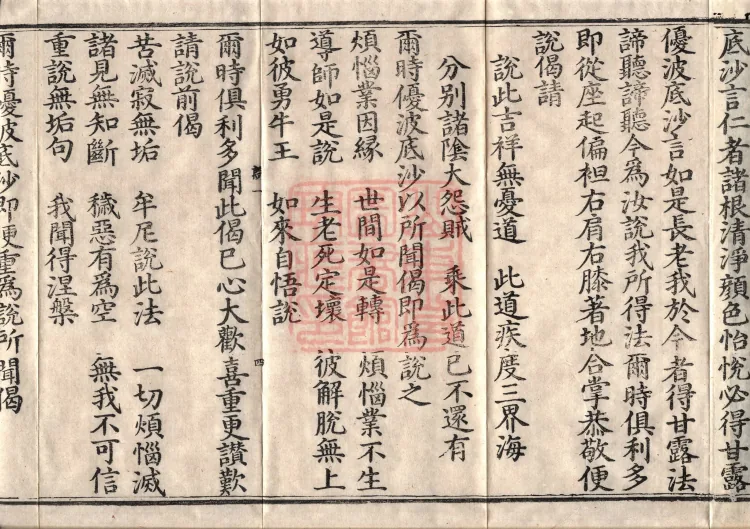 底沙言仁者諸根清淨顔色怡恱必得甘露
優波底沙言如是長老我於今者得甘露法
諦聽諦聽今爲汝說我所得法爾時俱利多
即從座起偏袒右肩右膝著地合掌恭敬便
說偈請
說此吉祥無憂道　此道疾度三界海
分別諸陰大怨賊　乘此道已不還有
爾時優波底沙以所聞偈即爲說之
煩惱業因緣　世間如是轉　煩惱業不生
導師如是說　生老死定壞　彼解脫無上
如彼勇牛王　如來自悟說
四
爾時俱利多聞此偈已心大歡喜重更讃歎
請說前偈
苦滅寂無垢　牟尼說此法　一切煩惱滅
諸見無知斷　穢惡有爲空　無我不可信
重說無垢句　我聞得涅槃
爾時優波底沙即更重爲說所聞偈